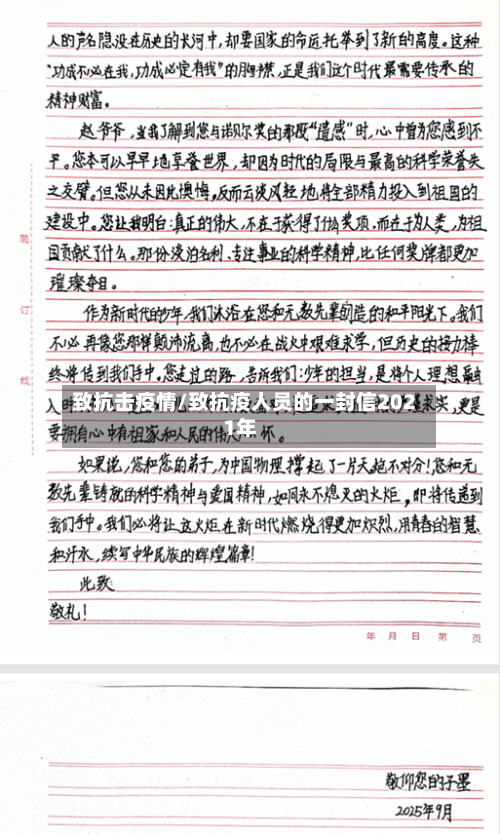 人的声名隐没在历史的长河中，却要国家的命运托举到了新的高度。这种
“功成不必在我，功成必定有我”的胸襟，正是我们这个时代最需要传承的
精神财富。
赵爷爷，当我了解到您与诺贝尔奖的那段“遗憾”时，心中曾为您感到不
平。您本可以早早地享誉世界，却因为时代的局限与最高的科学荣誉失
之交臂。但您从未因此懊悔，反而云淡风轻地将全部精力投入到祖国的
建设中。您让我明白：真正的伟大，不在于获得了什么奖项，而在于为人类，为祖
国贡献了什么。那份淡泊名利、专注事业的科学精神，比任何奖牌都更加
璀璨夺目。
作为新时代的少年，我们沐浴在您和无数先辈创造的和平阳光下。我们
不必再像您那样颠沛流离，也不必在战火中艰难求学，但历史的接力棒
终将传到我们手中。您走过的路，告诉我们：少年的担当，是将个人理想融
入
求实，更是
致抗击疫情/致抗疫人员的一封信202
1年
要拥有心中有祖家和人民的伟大 怀。
如果说，您和您的弟子，为中国物理撑起了一片天绝不对分！您和无
数先辈铸就的科学精神与爱国精神，如同永不熄灭的火炬，即将传递到
我们手中。我们必将让这火炬在新时代燃烧得更加炽烈，用青春的智慧
和汗水，续写中华民族的辉煌篇章！
此致
敬礼！
年 月 日 第 页
装
订
线
敬仰您的子墨
2025年9月